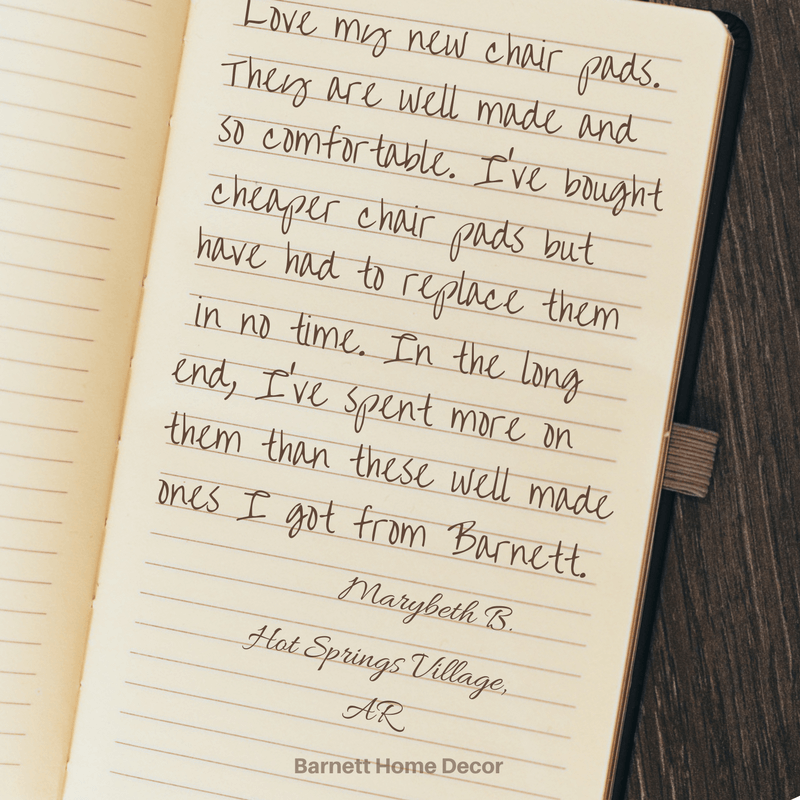 Love my new chair pads.
They are well made and
so comfortable. I've bought
cheaper chair pads but
have had to replace them
in no time. In the long
end, I've spent more on
them than these well made
ones I got from Barnett.
Marybeth B.
Hot Springs Village,
AR
Barnett Home Decor